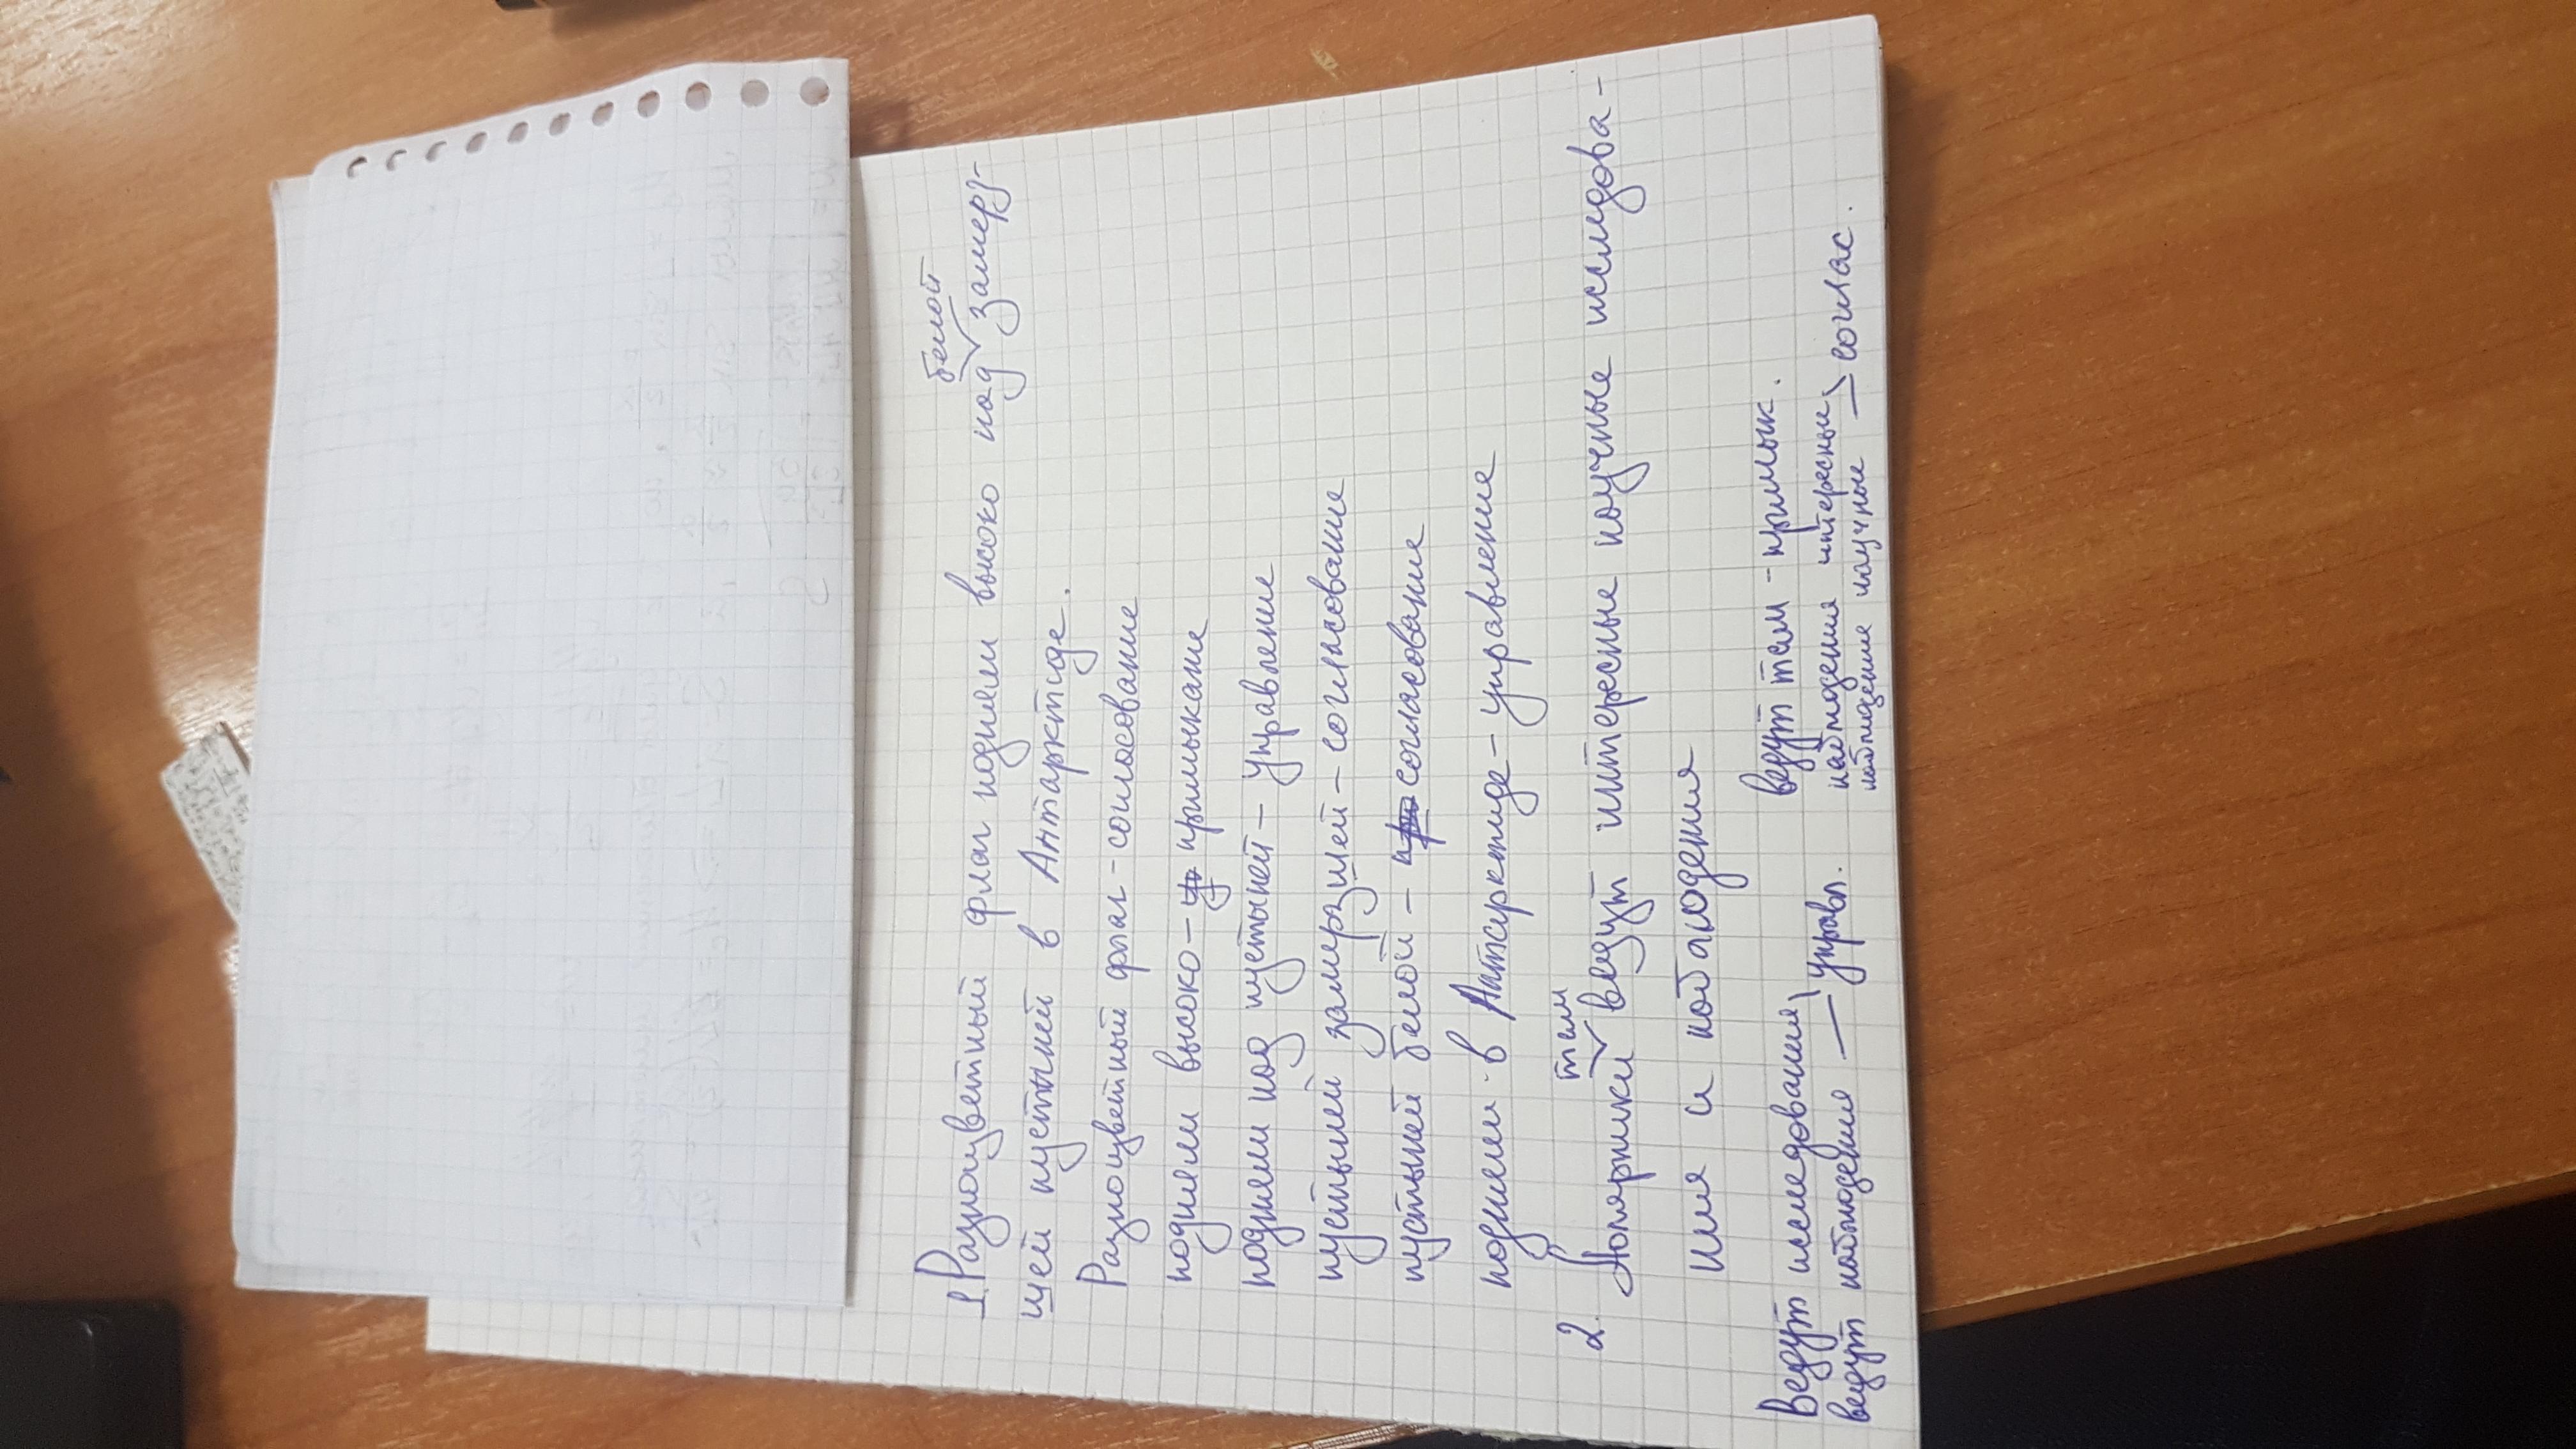 белой
1. Разноцветный флаг поднят высоко над замерз-
шей пустыней в Антарктиде.
Разноцветный флаг - согласование
поднят высоко - примыкание
поднят над пустыней - управление
пустыней замерзшей - согласование
пустыней белой - согласование
поднят в Антарктиде - управление
там
2. Полярники ведут интересные научные исследова-
ния и наблюдения
Ведут исследования
ведут наблюдения - управл.
ведут там - примык.
наблюдения интересные
наблюдение научные - соглас.